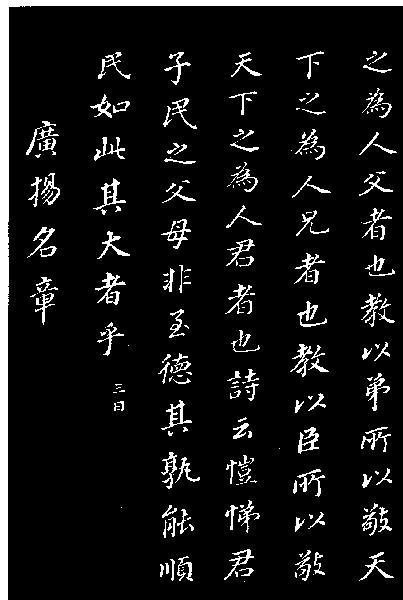 之為人父者也教以弟所以敬天
下之為人兄者也教以臣所以敬
天下之為人君者也詩云愷悌君
子民之父母非至德其孰能順
民如此其大者乎
三日
廣揚名章